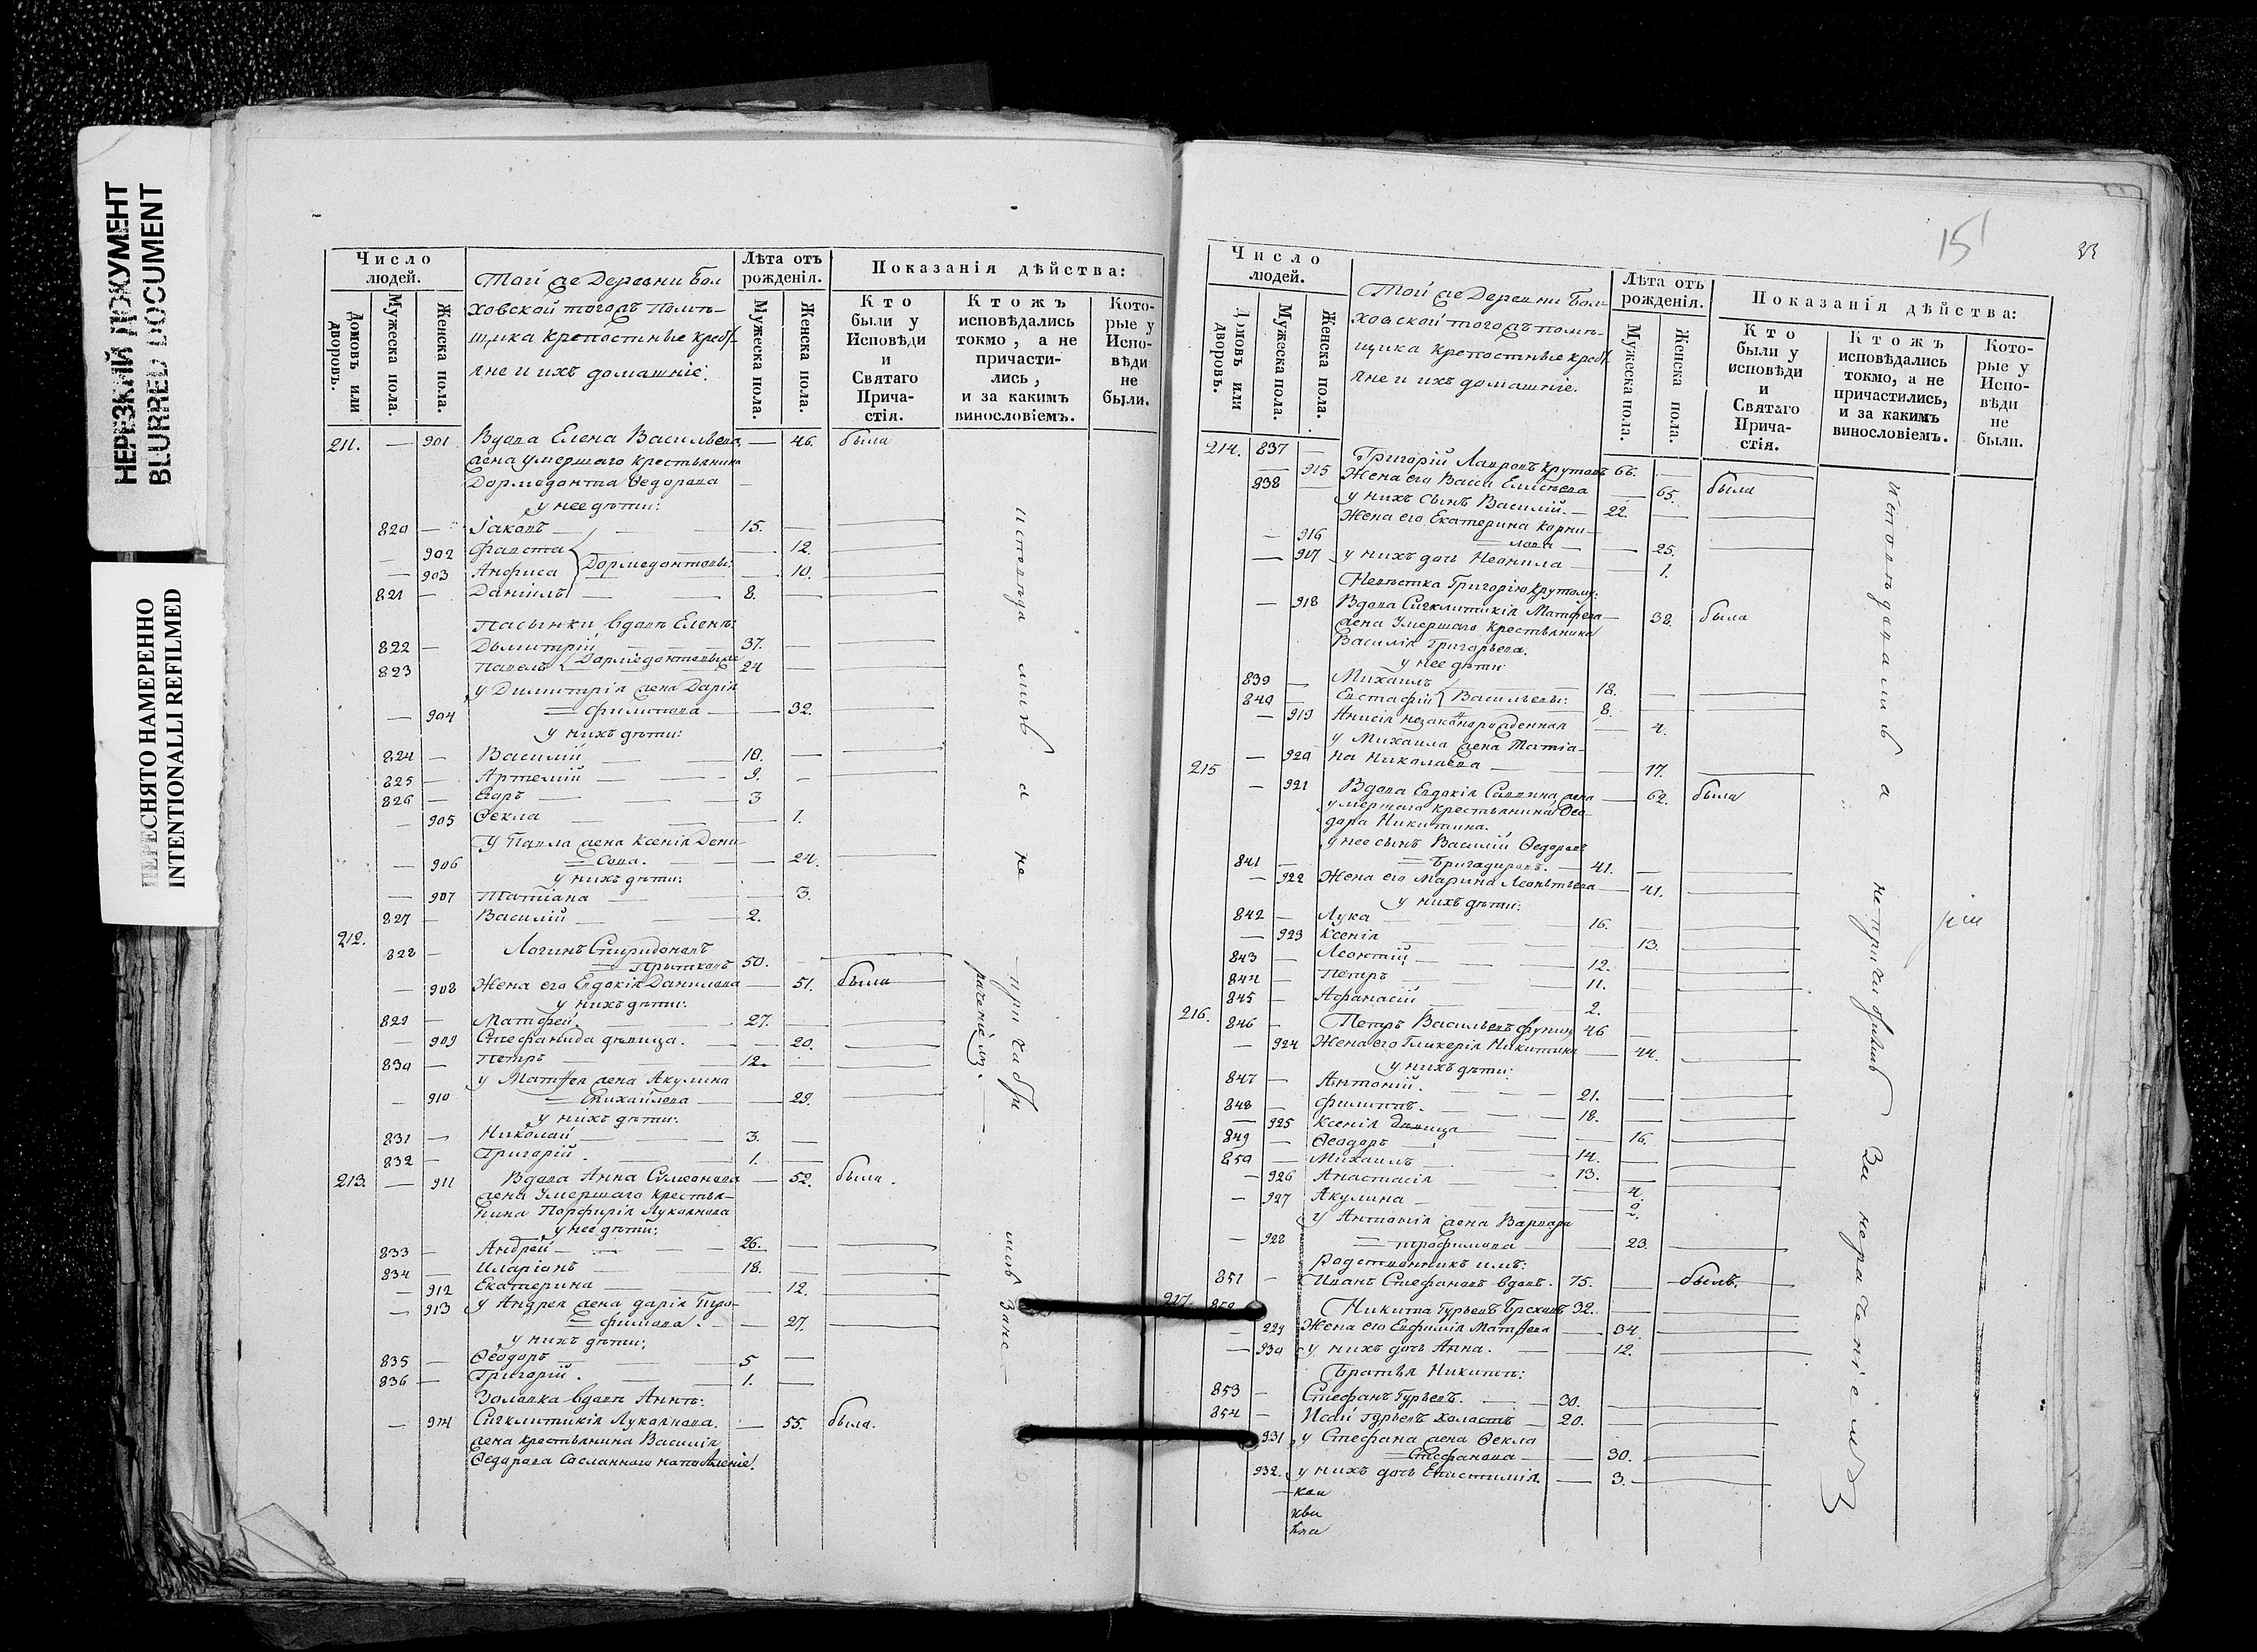 НЕРЕЗКИЙ ДОКУМЕНТ
BLURRED DOCUMENT
ПЕРЕСНЯТО НАМЕРЕННО
INTENTIONALLI REFILMED
Число людей.
Домовъ или дворовъ.
Мужеска пола.
Женска пола.
Той же Деревни Бол
ховской тогожъ помѣ-
щика крепостные крест
яне и ихъ домашніе.
Лѣта отъ рожденія.
Мужеска пола.
Женска пола.
Показанія дѣйства:
Кто были у Исповѣди и Святаго Прича-стія.
Ктожъ исповѣдались токмо, а не причасти-лись, и за какимъ винословіемъ.
Кото-рые у Испо-вѣди не были.
211. — 901 Вдова Елена Васильева — 46. была
жена умершаго крестьянина
Дормедонта Ѳедорова
у нее дѣти:
820 — Іаковъ — 15. —
— 902 Фавста — 12.
— 903 Анфиса Дормедонтовы: — 10.
821 — Даніилъ — 8. —
пасынки вдовѣ Еленѣ:
822 — Дьмитрій 37. —
823 — Павелъ Дормедонтовы 24 —
у Димитрія жена Дарія
— 904 Филипова — 32.
у нихъ дѣти:
824 — Василій — 10. —
825 — Артемій — 9. —
826 — Егоръ — 3
— 905 Ѳекла — 1.
У Павла жена Ксенія Дени-
— 906 сова. — 24.
у нихъ дѣти:
— 907 Татіана — 3.
827 — Василій — 2.
212. 828 — Логинъ Спиридоновъ
Прытковъ 50. —
— 908 Жена его Евдокія Данилова — 51. была
у нихъ дѣти:
829 — Матфей. — 27. —
— 909 Стефанида дѣвица. — 20.
830 — Петръ — 12. —
у Матфея жена Акулина
— 910 Михайлова — 29.
у нихъ дѣти:
831 — Николай — 3. —
832 — Григорій. — 1. —
213. — 911 Вдова Анна Сумеонова — 52. была.
жена умершаго крестья-
нина Порфирія Лукоянова
у нее дѣти:
833 — Андрей — 26. —
834 — Иларіонъ — 18. —
— 912 Екатерина — 12.
— 913 у Андрея жена Дарія Тро-
фимова. — 27.
у нихъ дѣти:
835 — Ѳеодоръ — 5 —
836 — Григорій. — 1. —
Золовка вдовѣ Аннѣ:
— 914 Сигклитикія Лукоянова. — 55. была.
жена крестьянина Василія
Ѳедорова сосланнаго на поселеніе.
исповѣда лись а не при части
лись Зане-
раченіемъ.
15
Число людей.
Домовъ или дворовъ.
Мужеска пола.
Женска пола.
Той же Деревни Бол-
ховской тогожъ помѣ-
щика крепостные крест
яне и ихъ домашніе.
Лѣта отъ рожденія.
Мужеска пола.
Женска пола.
Показанія дѣйства:
Кто были у исповѣди и Святаго Прича-стія.
Ктожъ исповѣдались токмо, а не причастились, и за какимъ винословіемъ.
Кото-рые у Испо-вѣди не были.
214. 837 — Григорій Лавровъ Крутовъ 66. —
— 915 Жена его Васса Елисѣева — 65. была
838 у нихъ сынъ Василій. — 22. —
Жена его Екатерина Корни-
— 916 лова — 25.
— 917 у нихъ дочь Неонила — 1.
Невѣстка Григорію Крутову:
— 918 Вдова Сигклитикія Матфева — 38. была
жена умершаго крестьянина
Василія Григорьева.
у нее дѣти:
839 — Михаилъ 18. —
840 — Евстафій Васильевы: 8.
— 919 Анисія незаконорожденная — 4.
у Михаила жена Татіа-
— 920 на Николаева — 17.
215 — 921 Вдова Евдокія Саввина жена — 62. была
умершаго крестьянина Ѳео-
дора Никитина.
у нее сынъ Василій Ѳедоровъ
841 — Бригадировъ. — 41. —
— 922 Жена его Марина Леонтьева — 41.
у нихъ дѣти:
842 — Лука — 16. —
— 923 Ксенія — 13.
843 — Леонтій — 12. —
844 — Петръ — 11. —
845 — Афанасій — 2.
216. 846 — Петръ Васильевъ 46 —
— 924 Жена его Гликерія Никитина — 44.
у нихъ дѣти:
847 — Антоній. — 21. —
848 — Филиппъ. — 18. —
— 925 Ксенія дѣвица — 16.
849 — Ѳеодоръ — 14. —
850 — Михаилъ — 13. —
— 926 Анастасія — 4.
— 927 Акулина — 2.
у Антонія жена Варвара
— 928 Трофимова — 23.
родственникъ имъ:
851 — Иванъ Стефановъ вдовъ. 75. — былъ.
217. 852 Никита Гурьевъ 32. —
— 929 Жена его Евфимія Матфева — 34.
— 930 у нихъ дочь Анна. — 12.
Братья Никитѣ:
853 — Стефанъ Гурьевъ. — 30. —
854 — Исай Гурьевъ холостъ — 20. —
931 у Стефана жена Ѳекла
Стефанова — 30.
932. у нихъ дочь Епистимія — 3.
исповѣдались а
непричастились За нераченіемъ